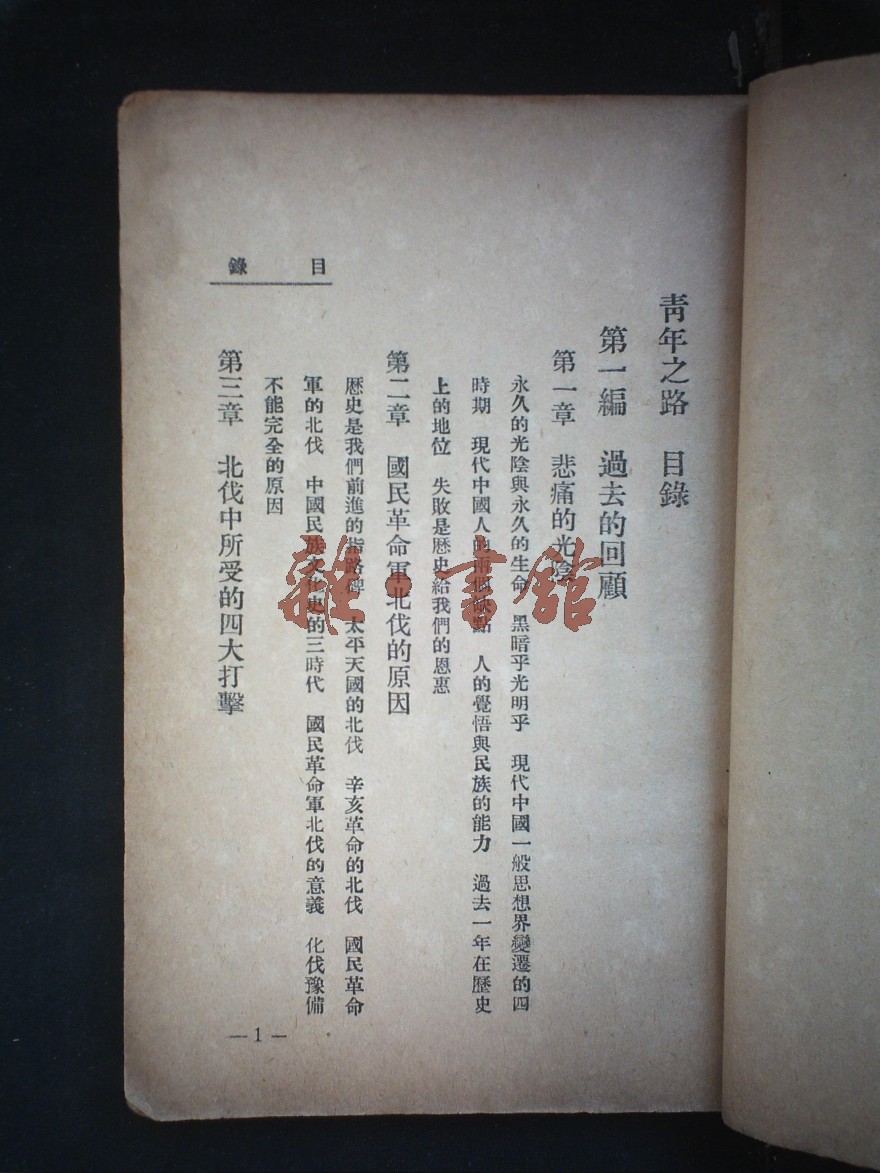 青年之路　目錄
第一編　過去的回顧
第一章　悲痛的光陰
永久的光陰與永久的生命　黑暗乎光明乎　現代中國一般思想界變遷的四
時期　現代中國人的兩個缺點　人的覺悟與民族的能力　過去一年在歷史
上的地位　失敗是歷史給我們的恩惠
第二章　國民革命軍北伐的原因
歷史是我們前進的指路碑　太平天國的北伐　辛亥革命的北伐　國民革命
軍的北伐　中國民族文化史的三時代　國民革命軍北伐的意義　化伐豫備
不能完全的原因
第三章　北伐中所受的四大打擊
目錄
—1—
雜·書館